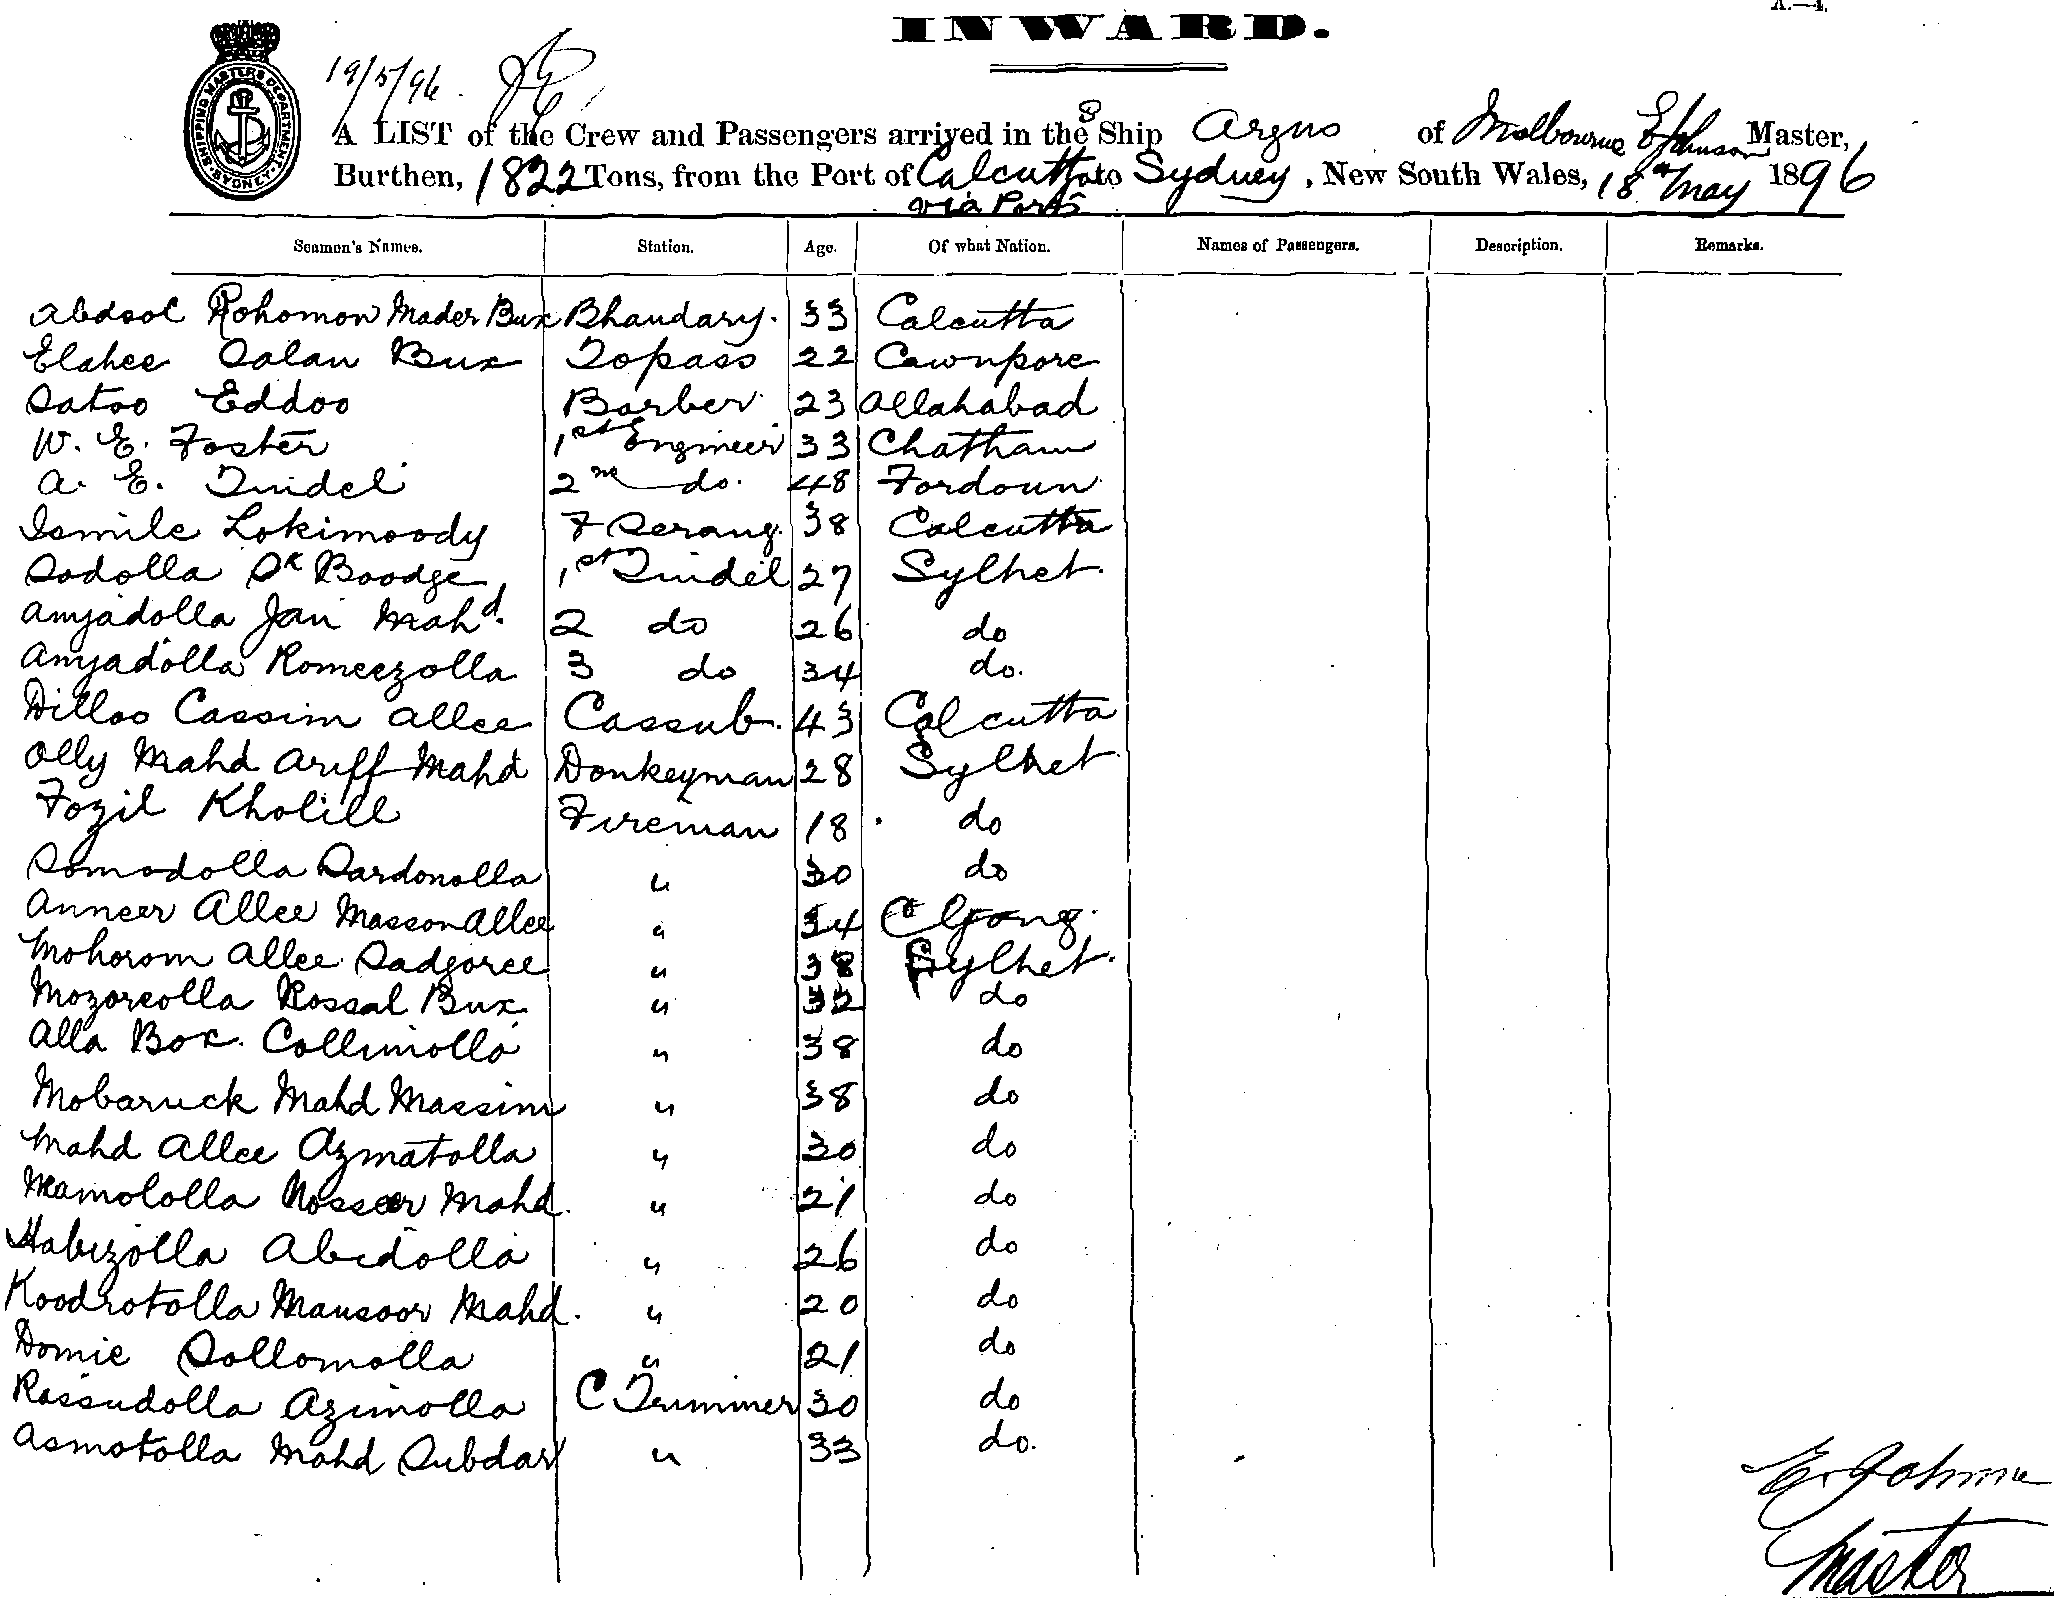 A.—4.
INWARD.
SHIPPING MASTERS DEPARTMENT SYDNEY
19/5/96.
A LIST of the Crew and Passengers arrived in the S Ship Argus of Melbourne E Johnson Master,
Burthen, 1822 Tons, from the Port of Calcutta to Sydney, New South Wales, 18th May 1896
via Ports
Seamen's Names. Station. Age. Of what Nation. Names of Passengers. Description. Remarks.
Abdool Rohomon Mader Bux Bhandary. 33 Calcutta
Elahee Salau Bux Topass 22 Cawnpore
Satoo Eddoo Barber 23 Allahabad
W. E. Foster 1st Engineer 33 Chatham
A. E. Tindel 2nd do. 48 Fordoun
Ismile Lokimoody F Serang. 38 Calcutta
Sodolla Sk Boodge 1st Tindel 27 Sylhet.
Amjadolla Jan Mahd. 2 do 26 do
Amjadolla Romeezolla 3 do 34 do.
Dilloo Cassim Allee Cassub. 43 Calcutta
Olly Mahd Ariff Mahd Donkeyman 28 Sylhet
Fozil Kholill Fireman 18 do
Somodolla Sardonolla " 30 do
Anneer Allee Masson Allee " 34 C Gong.
Mohorom Allee Sadgoree " 38 Sylhet.
Mozoreolla Rossal Bux " 32 do
Alla Box. Collimolla " 38 do
Mobaruck Mahd Massim " 38 do
Mahd Allee Azmatolla " 30 do
Mamololla Nosseer Mahd. " 21 do
Habizolla Abidolla " 26 do
Koodrotolla Mansoor Mahd. " 20 do
Domie Sollomolla " 21 do
Rassudolla Azimolla C Trimmer 30 do
Asmotolla Mahd Subdar " 33 do.
E. Johnson
Master